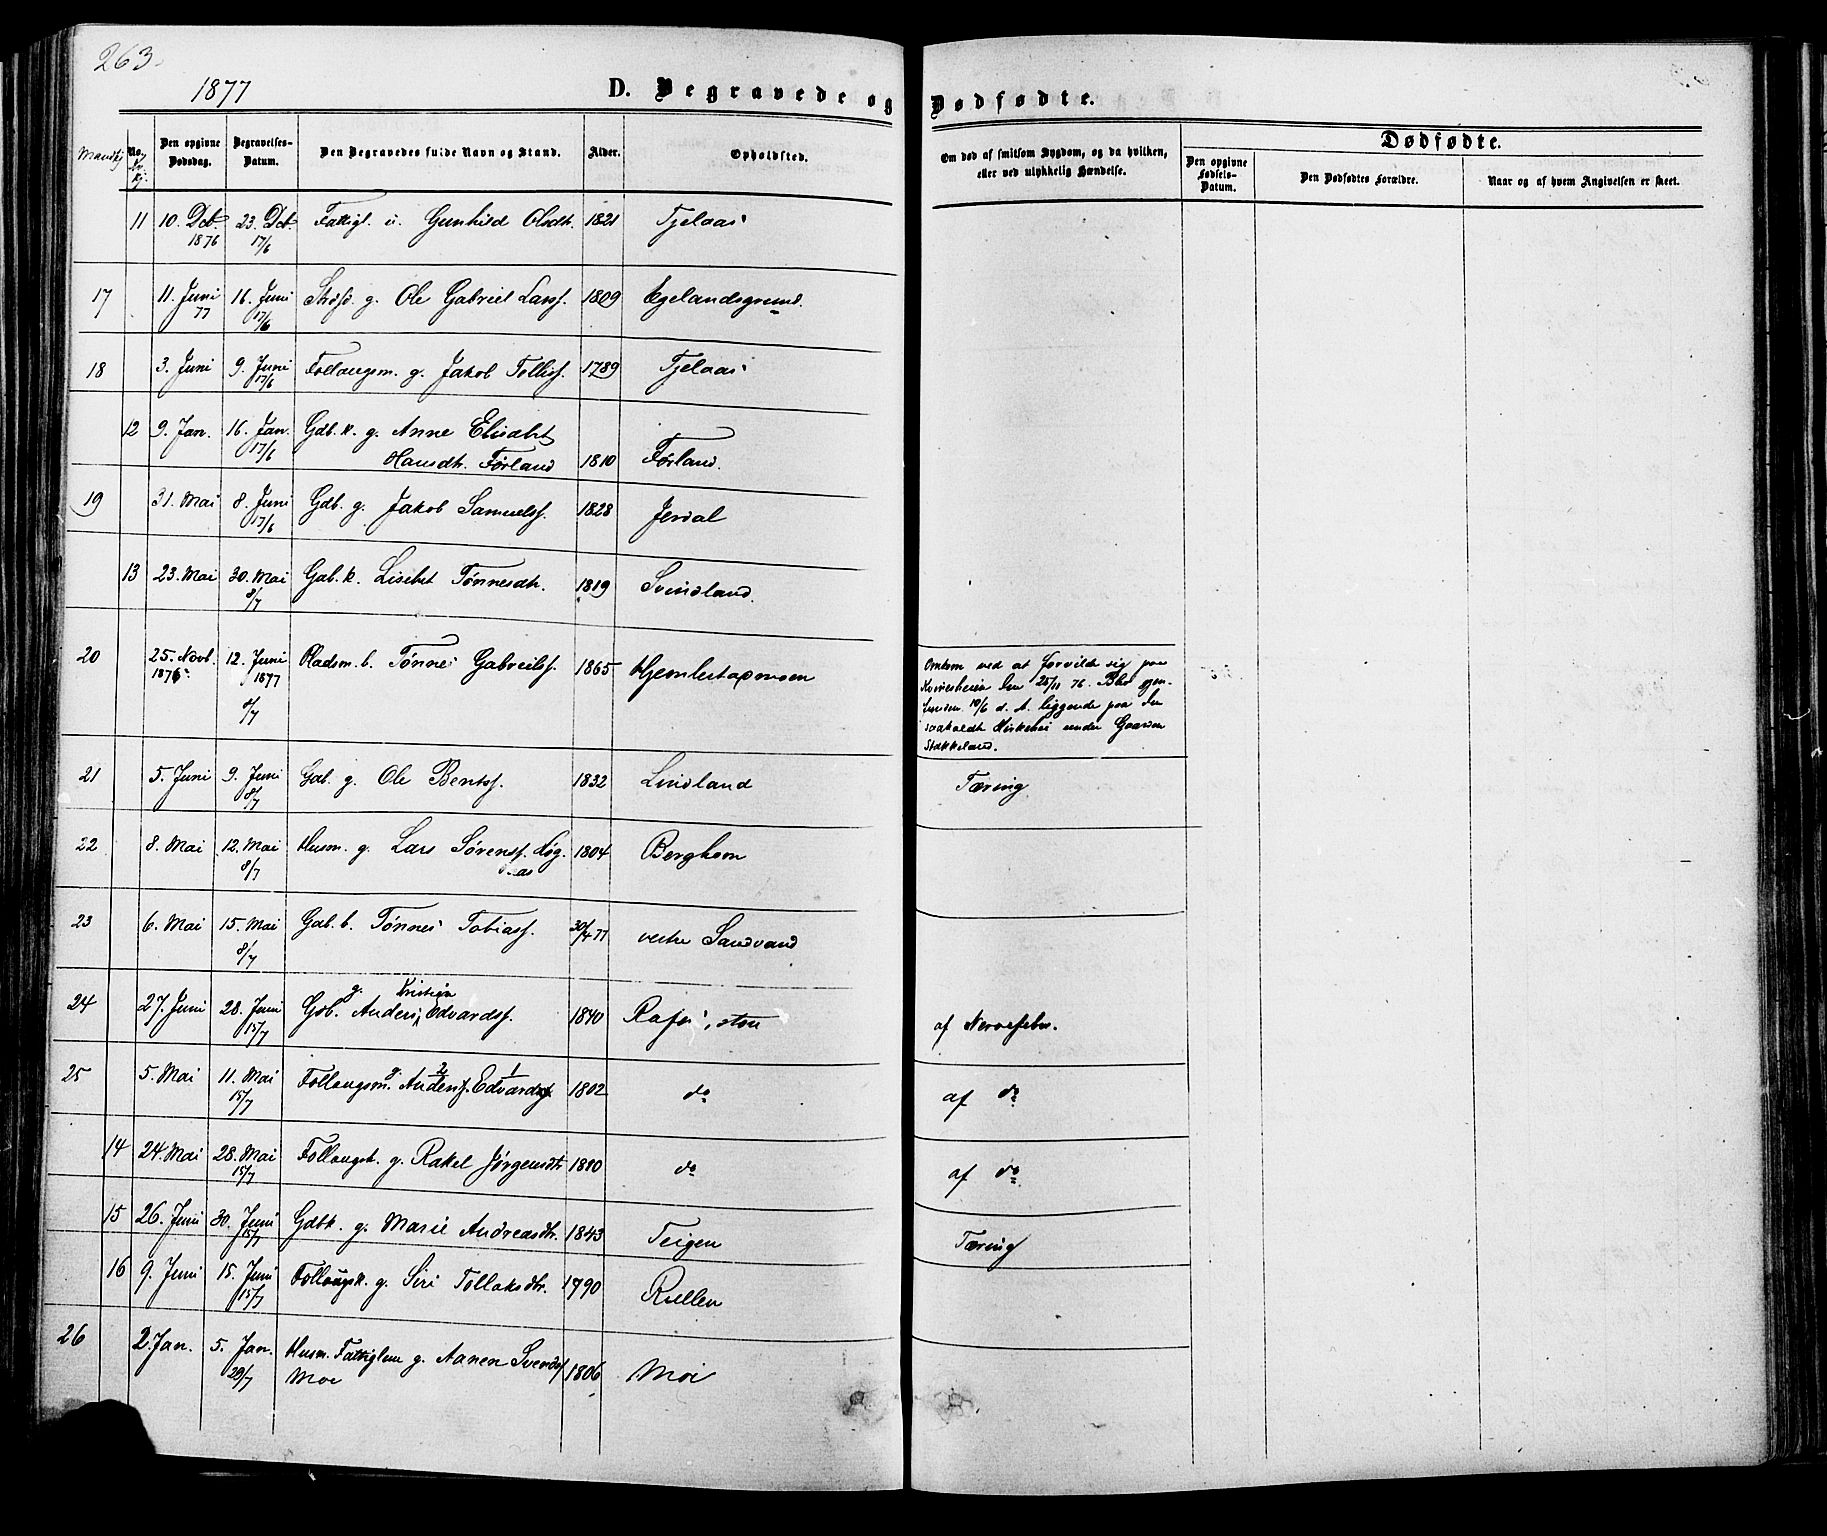 263.
1877
D. Begravede og Dødfødte.
Mandkj
No.
Kv.
kj.
Den opgivne Dødsdag.
Begravelses-Datum.
Den Begravedes fulde Navn og Stand.
Alder.
Opholdsted.
Om død af smitsom Sygdom, og da hvilken, eller ved ulykkelig Hændelse.
Dødfødte.
Den opgivne Fødsels-Datum.
Den Dødfødtes Forældre.
Naar og af hvem Angivelsen er skeet.
11 10. Dcb. 1876 23. Dcb. 17/6 Fattigl. u. Gunhild Olsdt. 1821 Tjelaas
17 11. Juni 77 16. Juni 17/6 g. Ole Gabriel Larss. 1809 Egelandsgrund.
18 3. Juni 9. Juni 17/6 Follaugsm. g. Jakob Tollss. 1789 Tjelaas
12 9. Jan. 16. Jan. 17/6 Gdb. k. g. Anne Elisabet
Hansdt. Førland 1810 Førland.
19 31. Mai 8. Juni 17/6 Gdb. g. Jakob Samuelss. 1828 Jerdal
13 23. Mai 30. Mai 8/7 Gdb. k. Lisebet Tønnesdtr. 1819 Svindland.
20 25. Novb. 1876 12. Juni 1877 8/7 Pladsm. b. Tønnes Gabrielss. 1865
Omkom ved at forvilde sig paa
Kvinesheien den 25/11 76. Blev gjen-
funden 10/6 d. A. liggende paa den
saakaldte under Gaarden
Stakkeland.
21 5. Juni 9. Juni 8/7 Gdb. g. Ole Bentss. 1832 Lindland Tæring
22 8. Mai 12. Mai 8/7 Husm. g. Lars Sørenss. 1804 Berghom
23 6. Mai 15. Mai 8/7 Gdb. b. Tønnes Tobiass. 30/4 77 vestre Sandvand
24 27. Juni 28. Juni 15/7 Gdb. g. Anders Kristian Edvardss. 1840 af Nervefeber.
25 5. Mai 11. Mai 15/7 Follaugsm. g. Anders 2 Edvards 1 1802 do af do
14 24. Mai 28. Mai 15/7 Follaugsk. g. Rakel Jørgensdt. 1810 do af do
15 26. Juni 30. Juni 15/7 Gdbk. g. Marie Andreasdtr. 1843 Teigen Tæring
16 9. Juni 15. Juni 15/7 Follaugsk. g. Siri Tollaksdtr. 1790 Rullen
26 2. Jan. 5. Jan. 29/7 Husm. Fattiglem g. Aanen Svends 1806 Moi
Moe